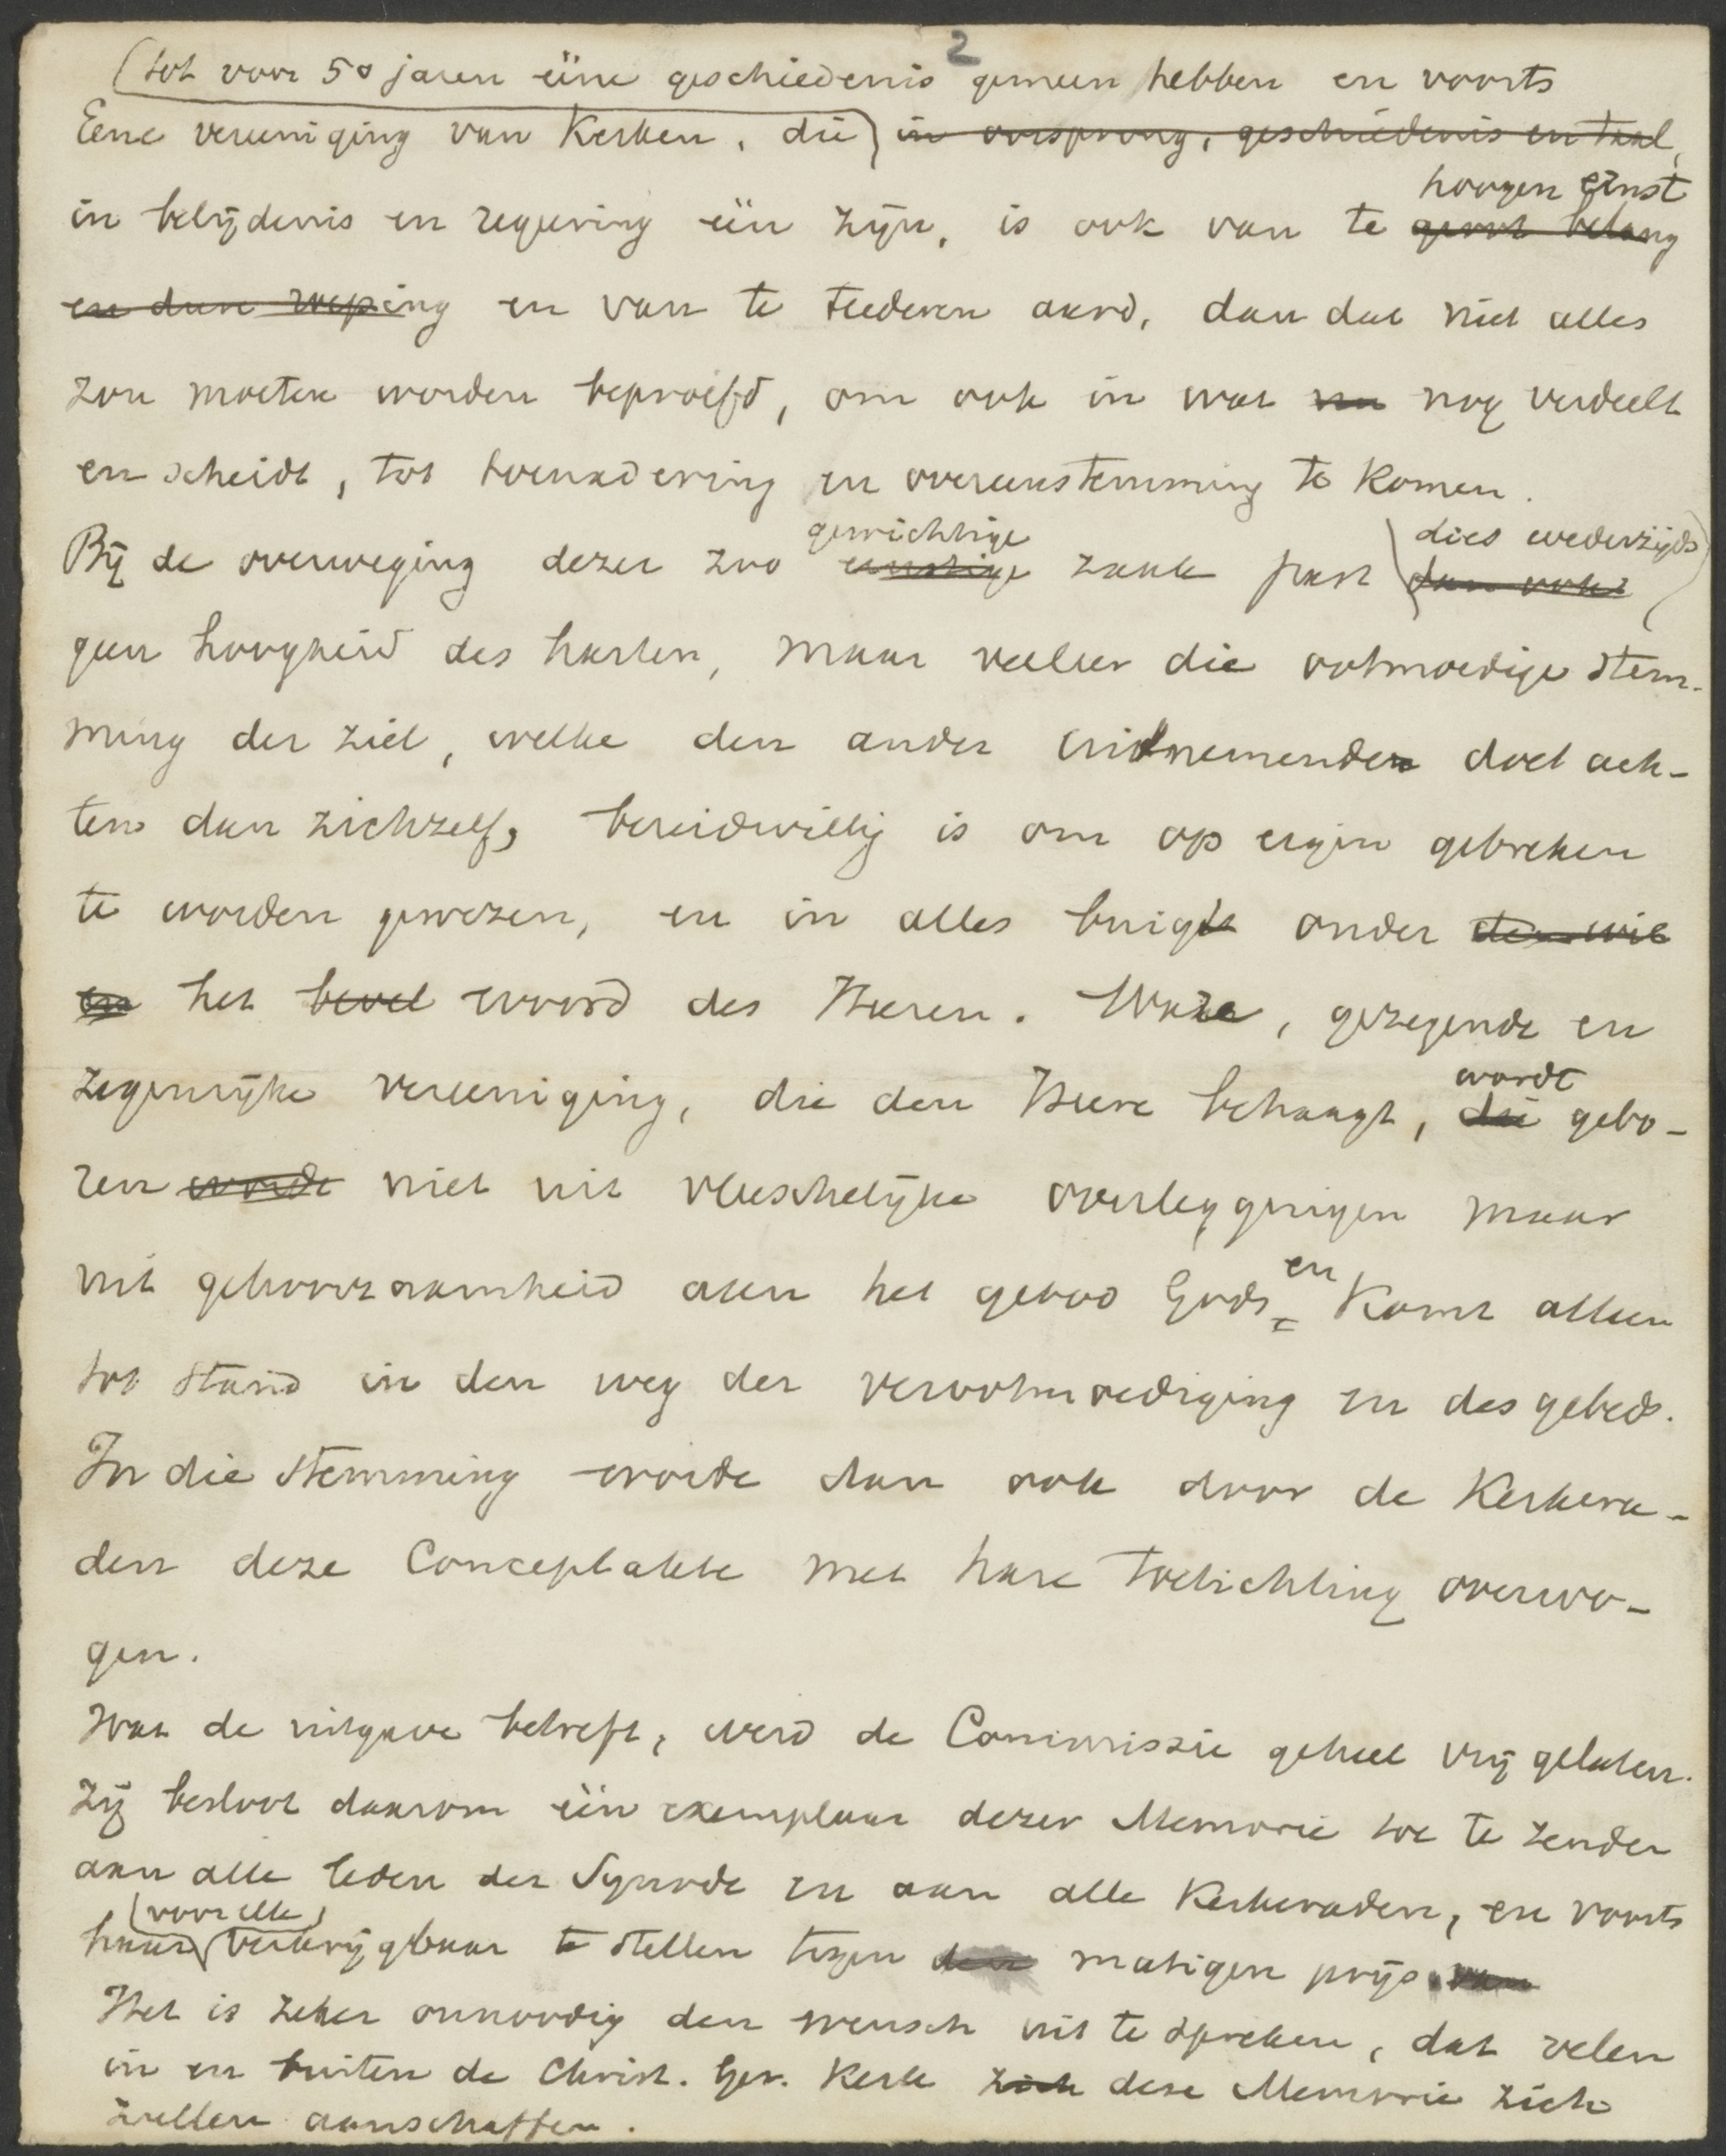 2
(tot voor 50 jaren ééne geschiedenis gemeen hebben en voorts
Eene vereeniging van Kerken, die) in oorsprong, geschiedenis en taal,
hoogen ernst
in belijdenis en regeering één zijn, is ook van te groot belang
en dan roeping en van te teederen aard, dan dat niet alles
zou moeten worden beproefd, om ook in wat nu nog verdeelt
en scheidt, tot toenadering en overeenstemming te komen.
gewichtige (dies wederzijds)
Bij de overweging dezer zoo ernstige zaak past dan ook
geen hoogheid des harten, maar veeleer die ootmoedige stem-
ming der ziel, welke den ander uitnemender doet ach-
ten dan zichzelf, bereidwillig is om op eigen gebreken
te worden gewezen, en in alles buigt onder den wil
en het bevel woord des Heeren. Ware, gezegende en
wordt
zegenrijke vereeniging, die den Heere behaagt, die gebo-
ren wordt niet uit vleeschelijke overleggingen maar
en
uit gehoorzaamheid aan het gebod Gods, komt alleen
tot stand in den weg der verootmoediging en des gebeds.
In die stemming worde dan ook door de Kerkera-
den deze Conceptakte met hare toelichting overwo-
gen.
Wat de uitgave betreft, werd de Commissie geheel vrij gelaten.
Zij besloot daarom één exemplaar dezer Memorie toe te zenden
aan alle leden der Synode en aan alle Kerkeraden, en voorts
(voor elk)
haar verkrijgbaar te stellen tegen den matigen prijs van
Het is zeker onnoodig den wensch uit te spreken, dat velen
in en buiten de Christ. Ger. Kerk zich deze Memorie zich
zullen aanschaffen.